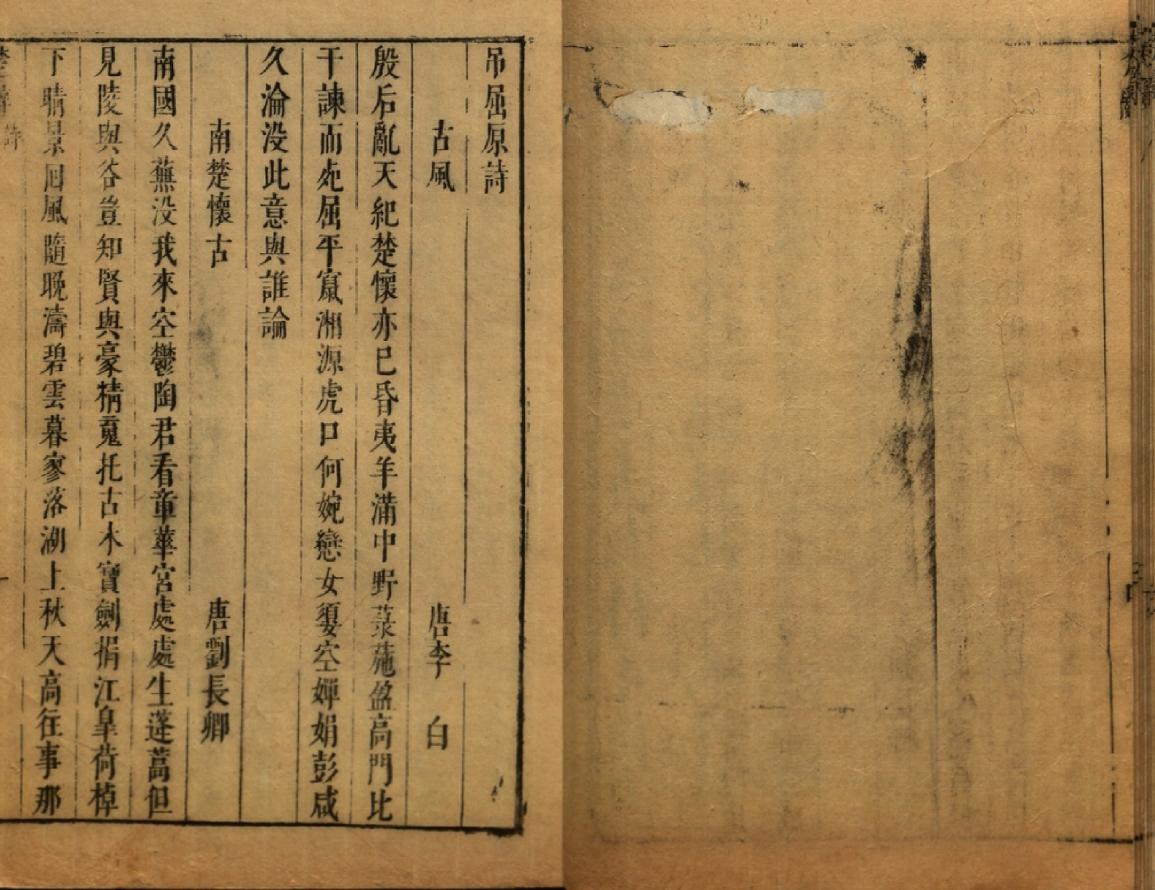 吊屈原詩
古風 唐李 白
殷后亂天紀楚懷亦巳昏夷羊滿中野菉葹盈高門比
干諫而死屈平竄湘源虎口何婉戀女嬃空嬋娟彭咸
久淪没此意與誰論
南楚懷古 唐劉長卿
南國久蕪没我來空鬱陶君看章華宮處處生蓬蒿但
見陵與谷豈知賢與豪精䰟托古木寶劍捐江臯荷棹
下晴景回風隨晚濤碧雲暮寥落湖上秋天高往事那